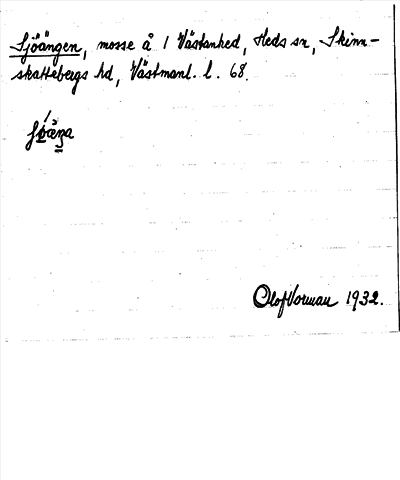 Sjöängen, mosse å 1 Västanhed, Heds sn, Skinn-
skattebergs hd, Västmanl. l. 68.
Olof Vorman 1932.